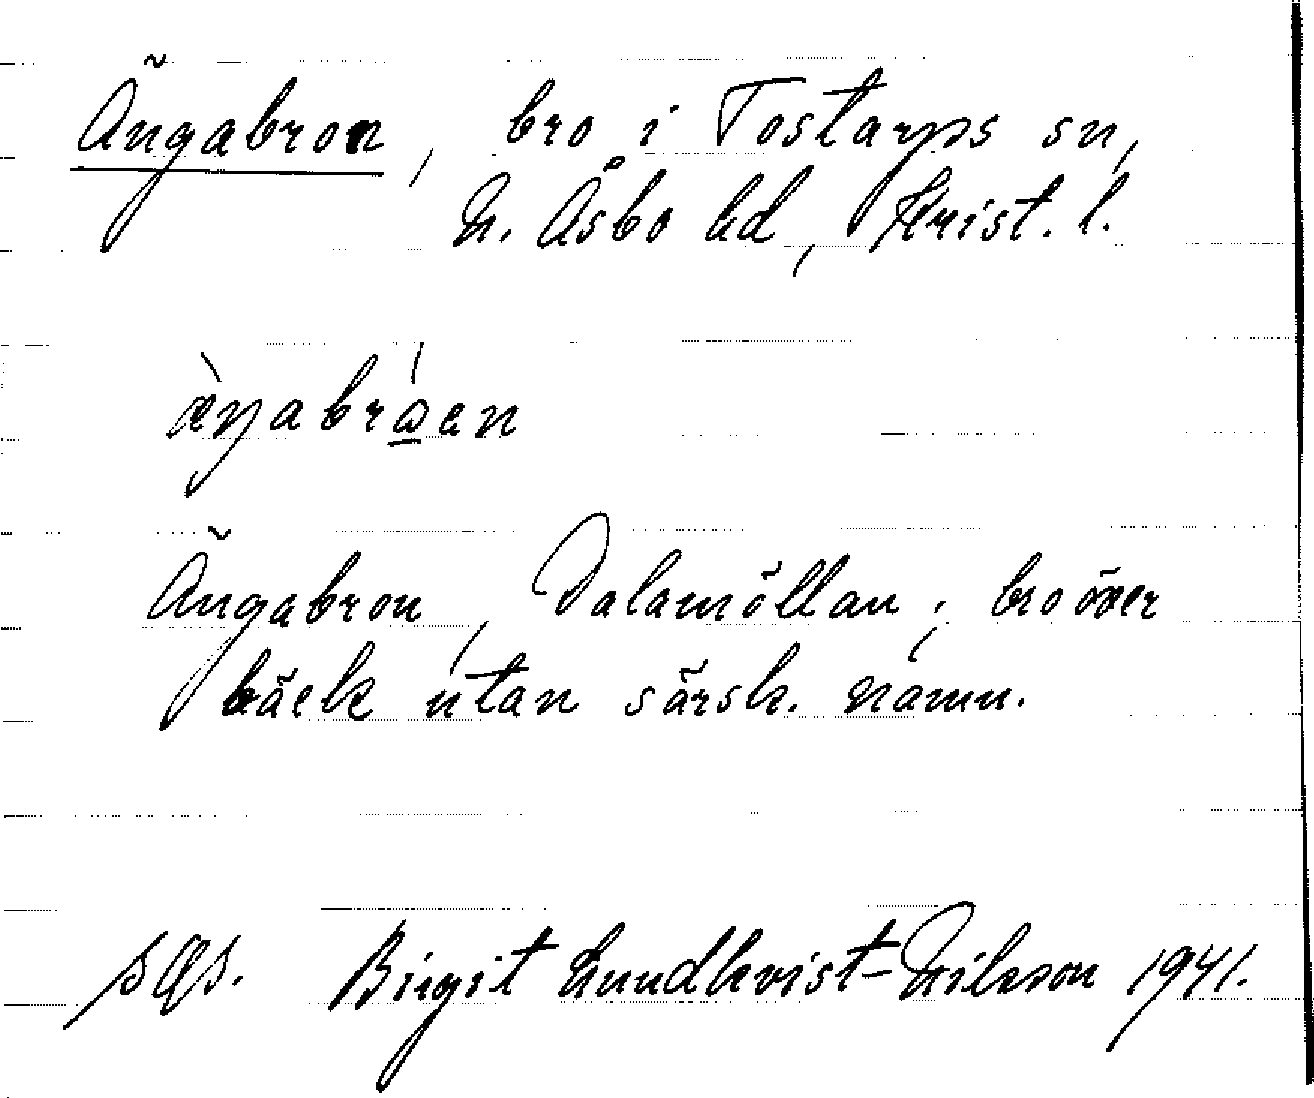 Ängabron, bro i Tostarps sn,
N. Åsbo hd, Krist. l.
æ̀ŋabrώ̲en
Ängabron, Dalamöllan; bro över
bäck utan särsk. namn.
SOS. Birgit Lundkvist-Nilsson 1941.